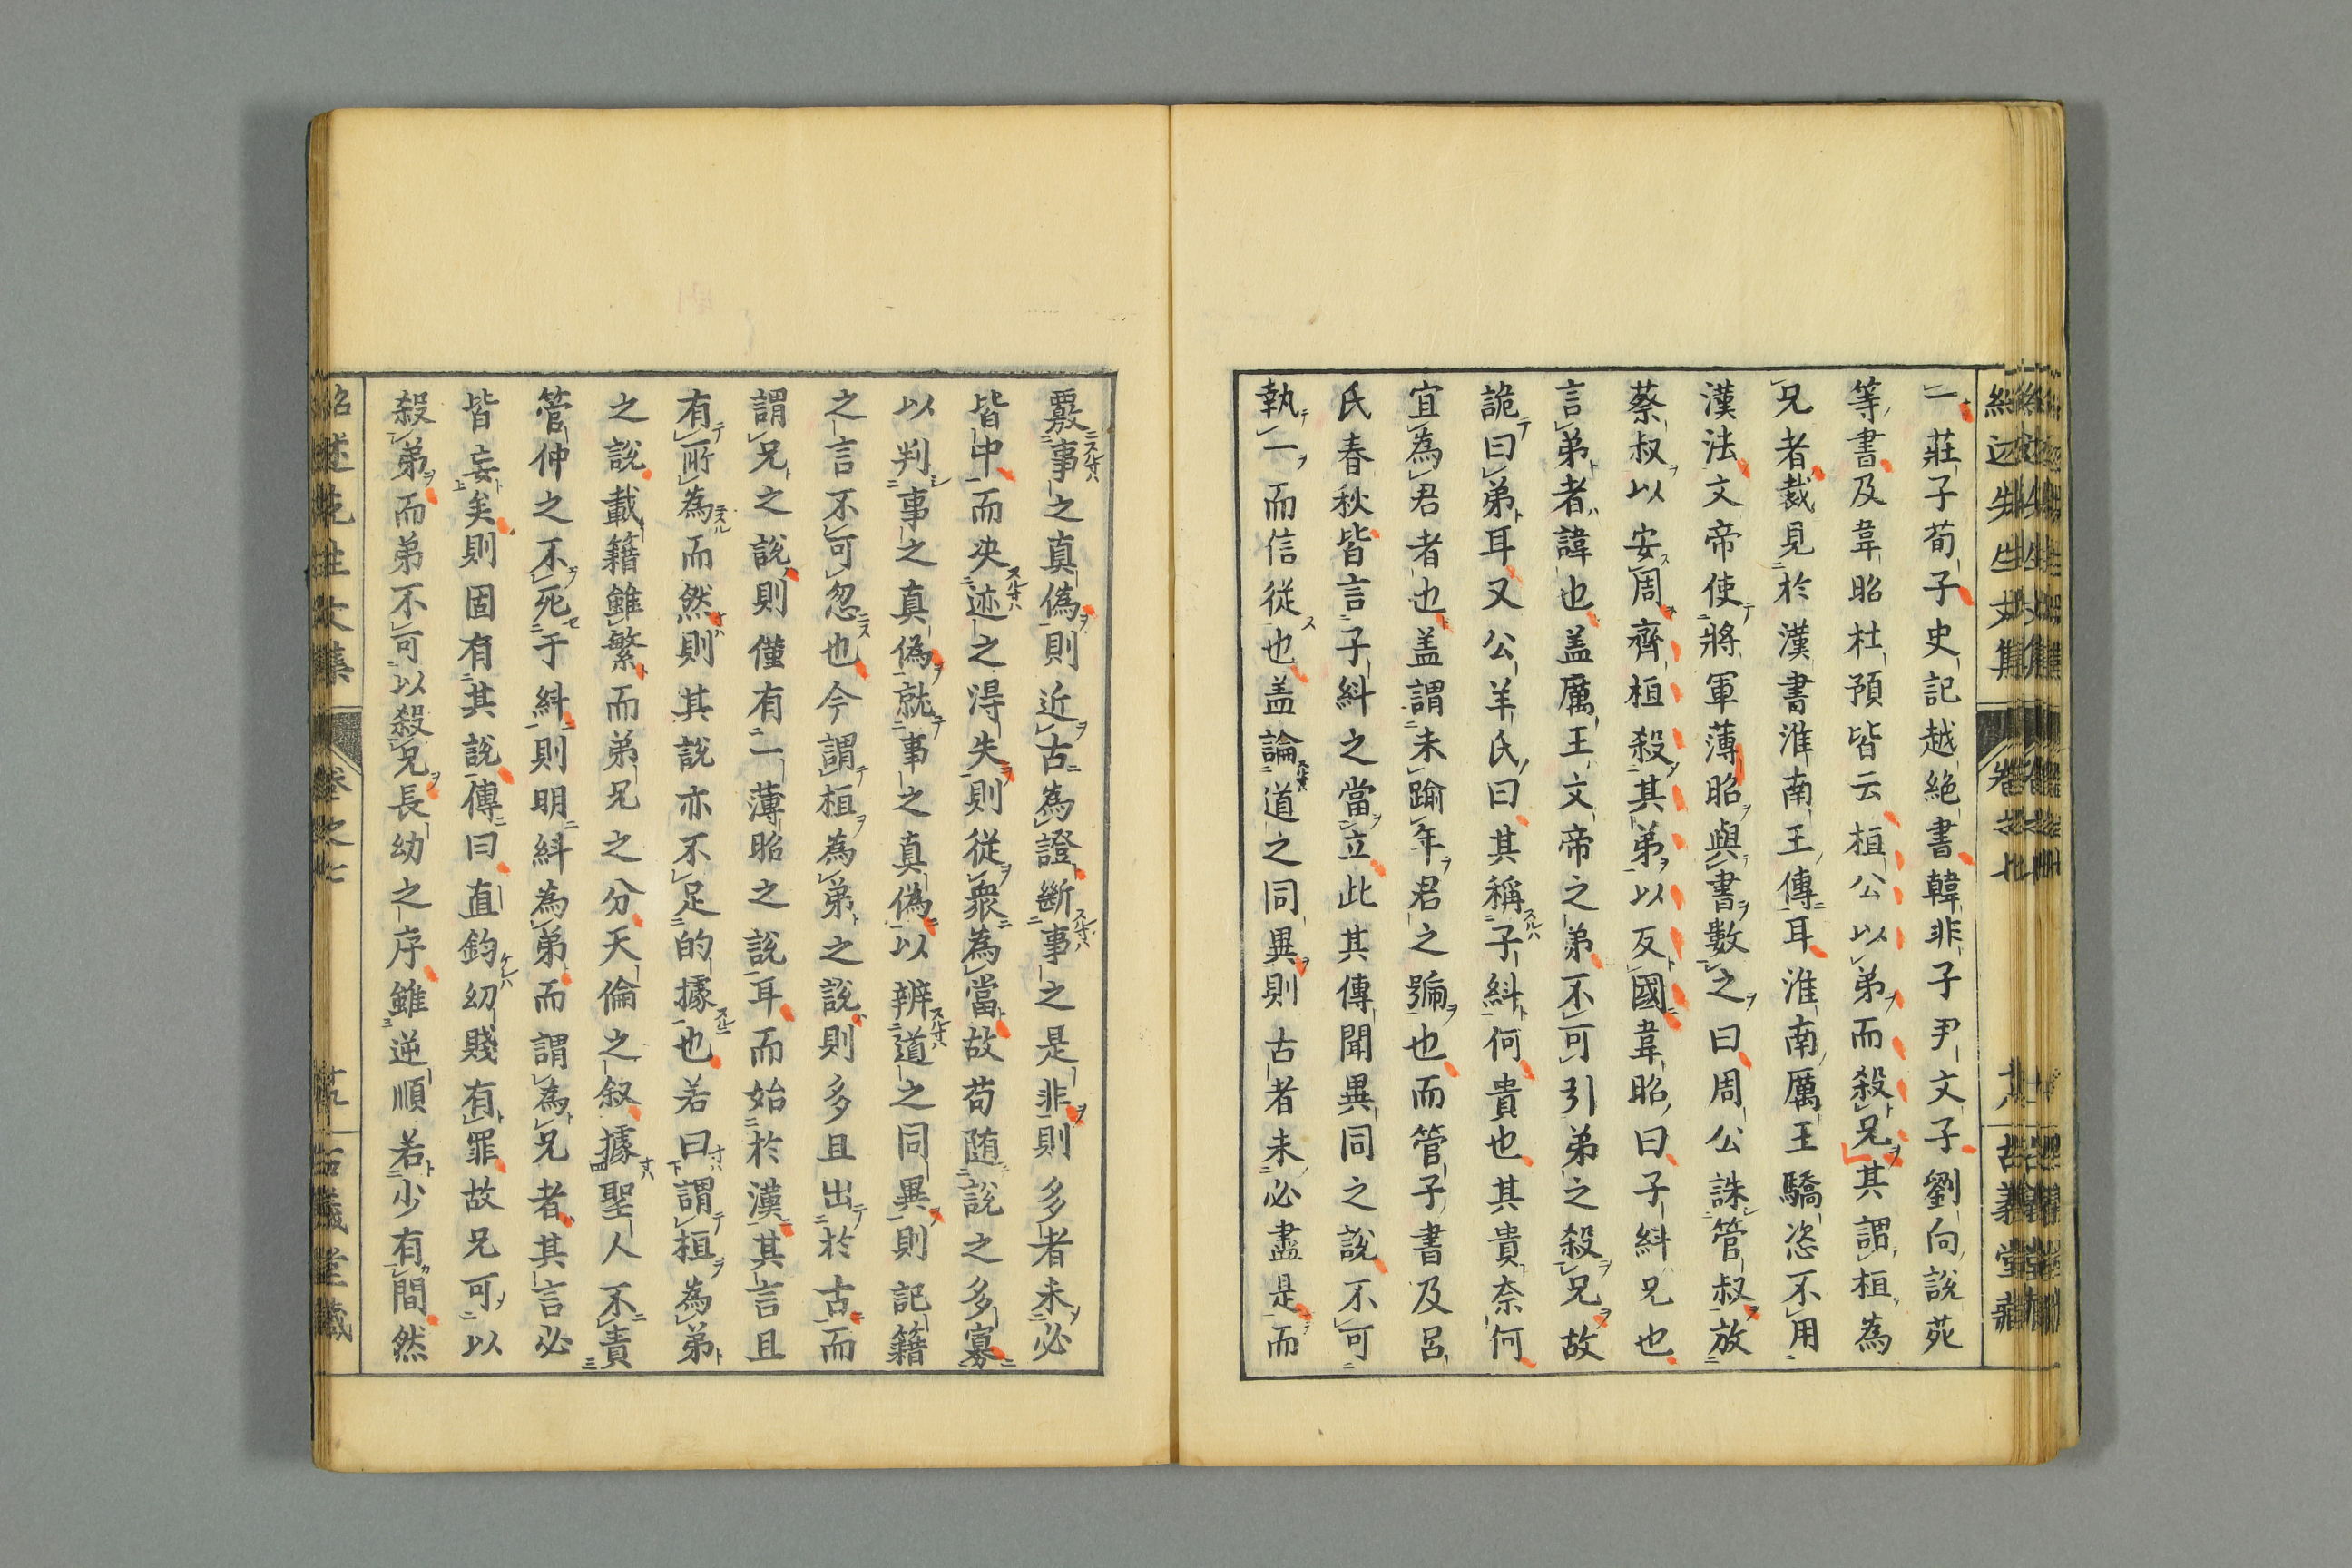 一莊子荀子史記越絶書韓非子尹文子劉向説苑
等書及韋昭杜預皆云桓公以弟而殺兄其謂桓為
兄者裁見於漢書淮南王傳耳淮南厲王驕恣不用
漢法文帝使將軍薄昭與書數之曰周公誅管叔放
蔡叔以安周齊桓殺其弟以反國韋昭曰子糾兄也
言弟者諱也盖厲王文帝之弟不可引弟之殺兄故
詭曰弟耳又公羊氏曰其稱子糾何貴也其貴奈何
宜為君者也盖謂未踰年君之號也而管子書及呂
氏春秋皆言子糾之當立此其傳聞異同之説不可
執一而信從也盖論道之同異則古者未必盡是而
覈事之真偽則近古為證斷事之是非則多者未必
皆中而决迹之得失則從衆為當故苟随説之多寡
以判事之真偽就事之真偽以辨道之同異則記籍
之言不可忽也今謂桓為弟之説則多且出於古而
謂兄之説則僅有一薄昭之説耳而始於漢其言且
有所為而然則其説亦不足的據也若曰謂桓為弟
之説載籍雖繁而弟兄之分天倫之叙據聖人不責
管仲之不死于糾則明糾為弟而謂為兄者其言必
皆妄矣則固有其説傳曰直鈞幼賤有罪故兄可以
殺弟而弟不可以殺兄長幼之序雖逆順若少有間然
紹述先生文集
卷之七
十九
古義堂藏